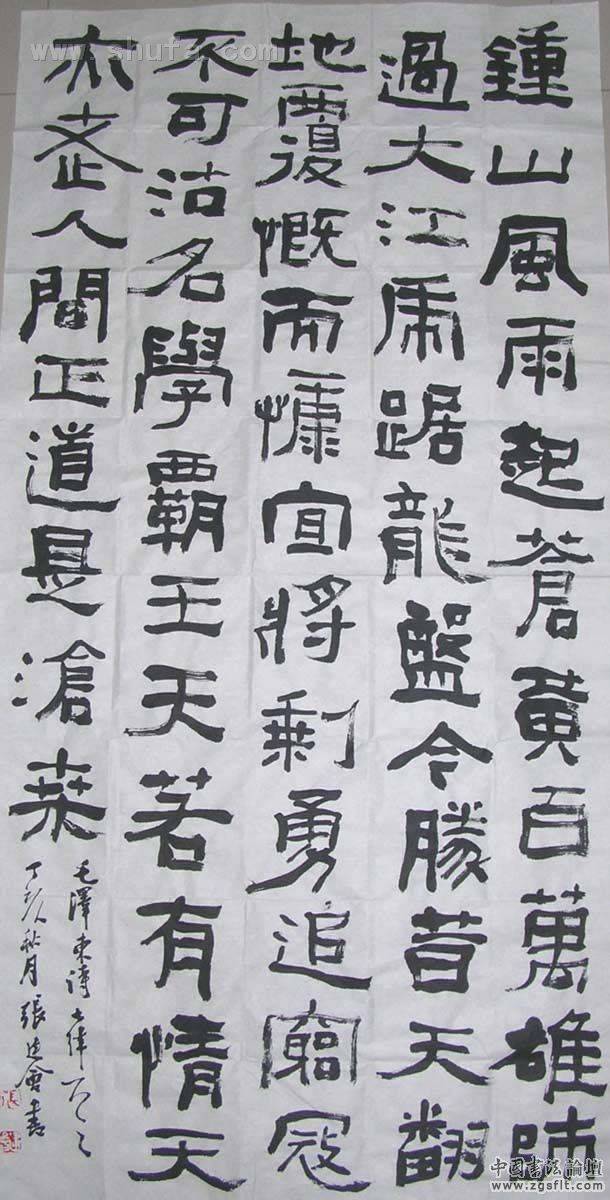 鍾山風雨起蒼黃百萬雄師
過大江虎踞龍盤今勝昔天翻
地覆慨而慷宜將剩勇追窮寇
不可沽名學霸王天若有情天
亦老人間正道是滄桑
毛澤東詩七律
丁亥秋月張會書
www.shufa.com
中國書法論壇
www.zgsflt.com